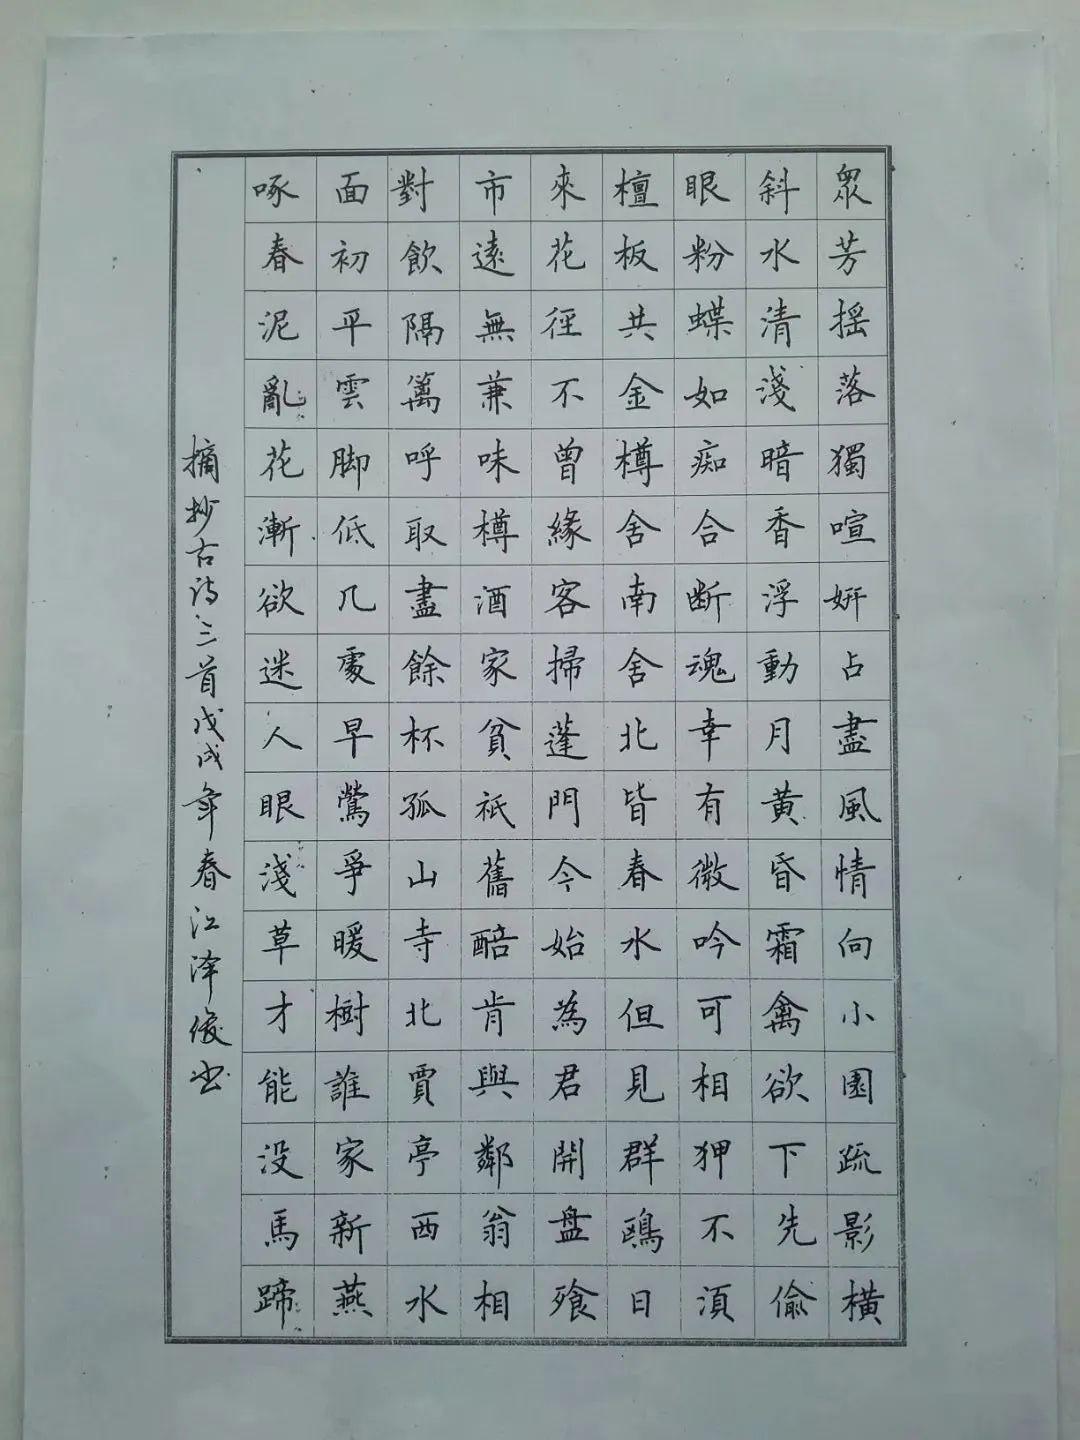 眾芳摇落獨喧妍占盡風情向小園疏影橫
斜水清淺暗香浮動月黄昏霜禽欲下先偷
眼粉蝶如痴合断魂幸有微吟可相狎不湏
檀板共金樽舍南舍北皆春水但見群鷗日
來花徑不曾緣客掃蓬門今始為君開盘飱
市遠無兼味樽酒家貧祇舊醅肯與鄰翁相
對飲隔篱呼取盡餘杯孤山寺北賈亭西水
面初平雲脚低几處早鶯爭暖樹誰家新燕
啄春泥亂花漸欲迷人眼淺草才能没馬蹄
摘抄古诗三首戊戌年春江泽俊书